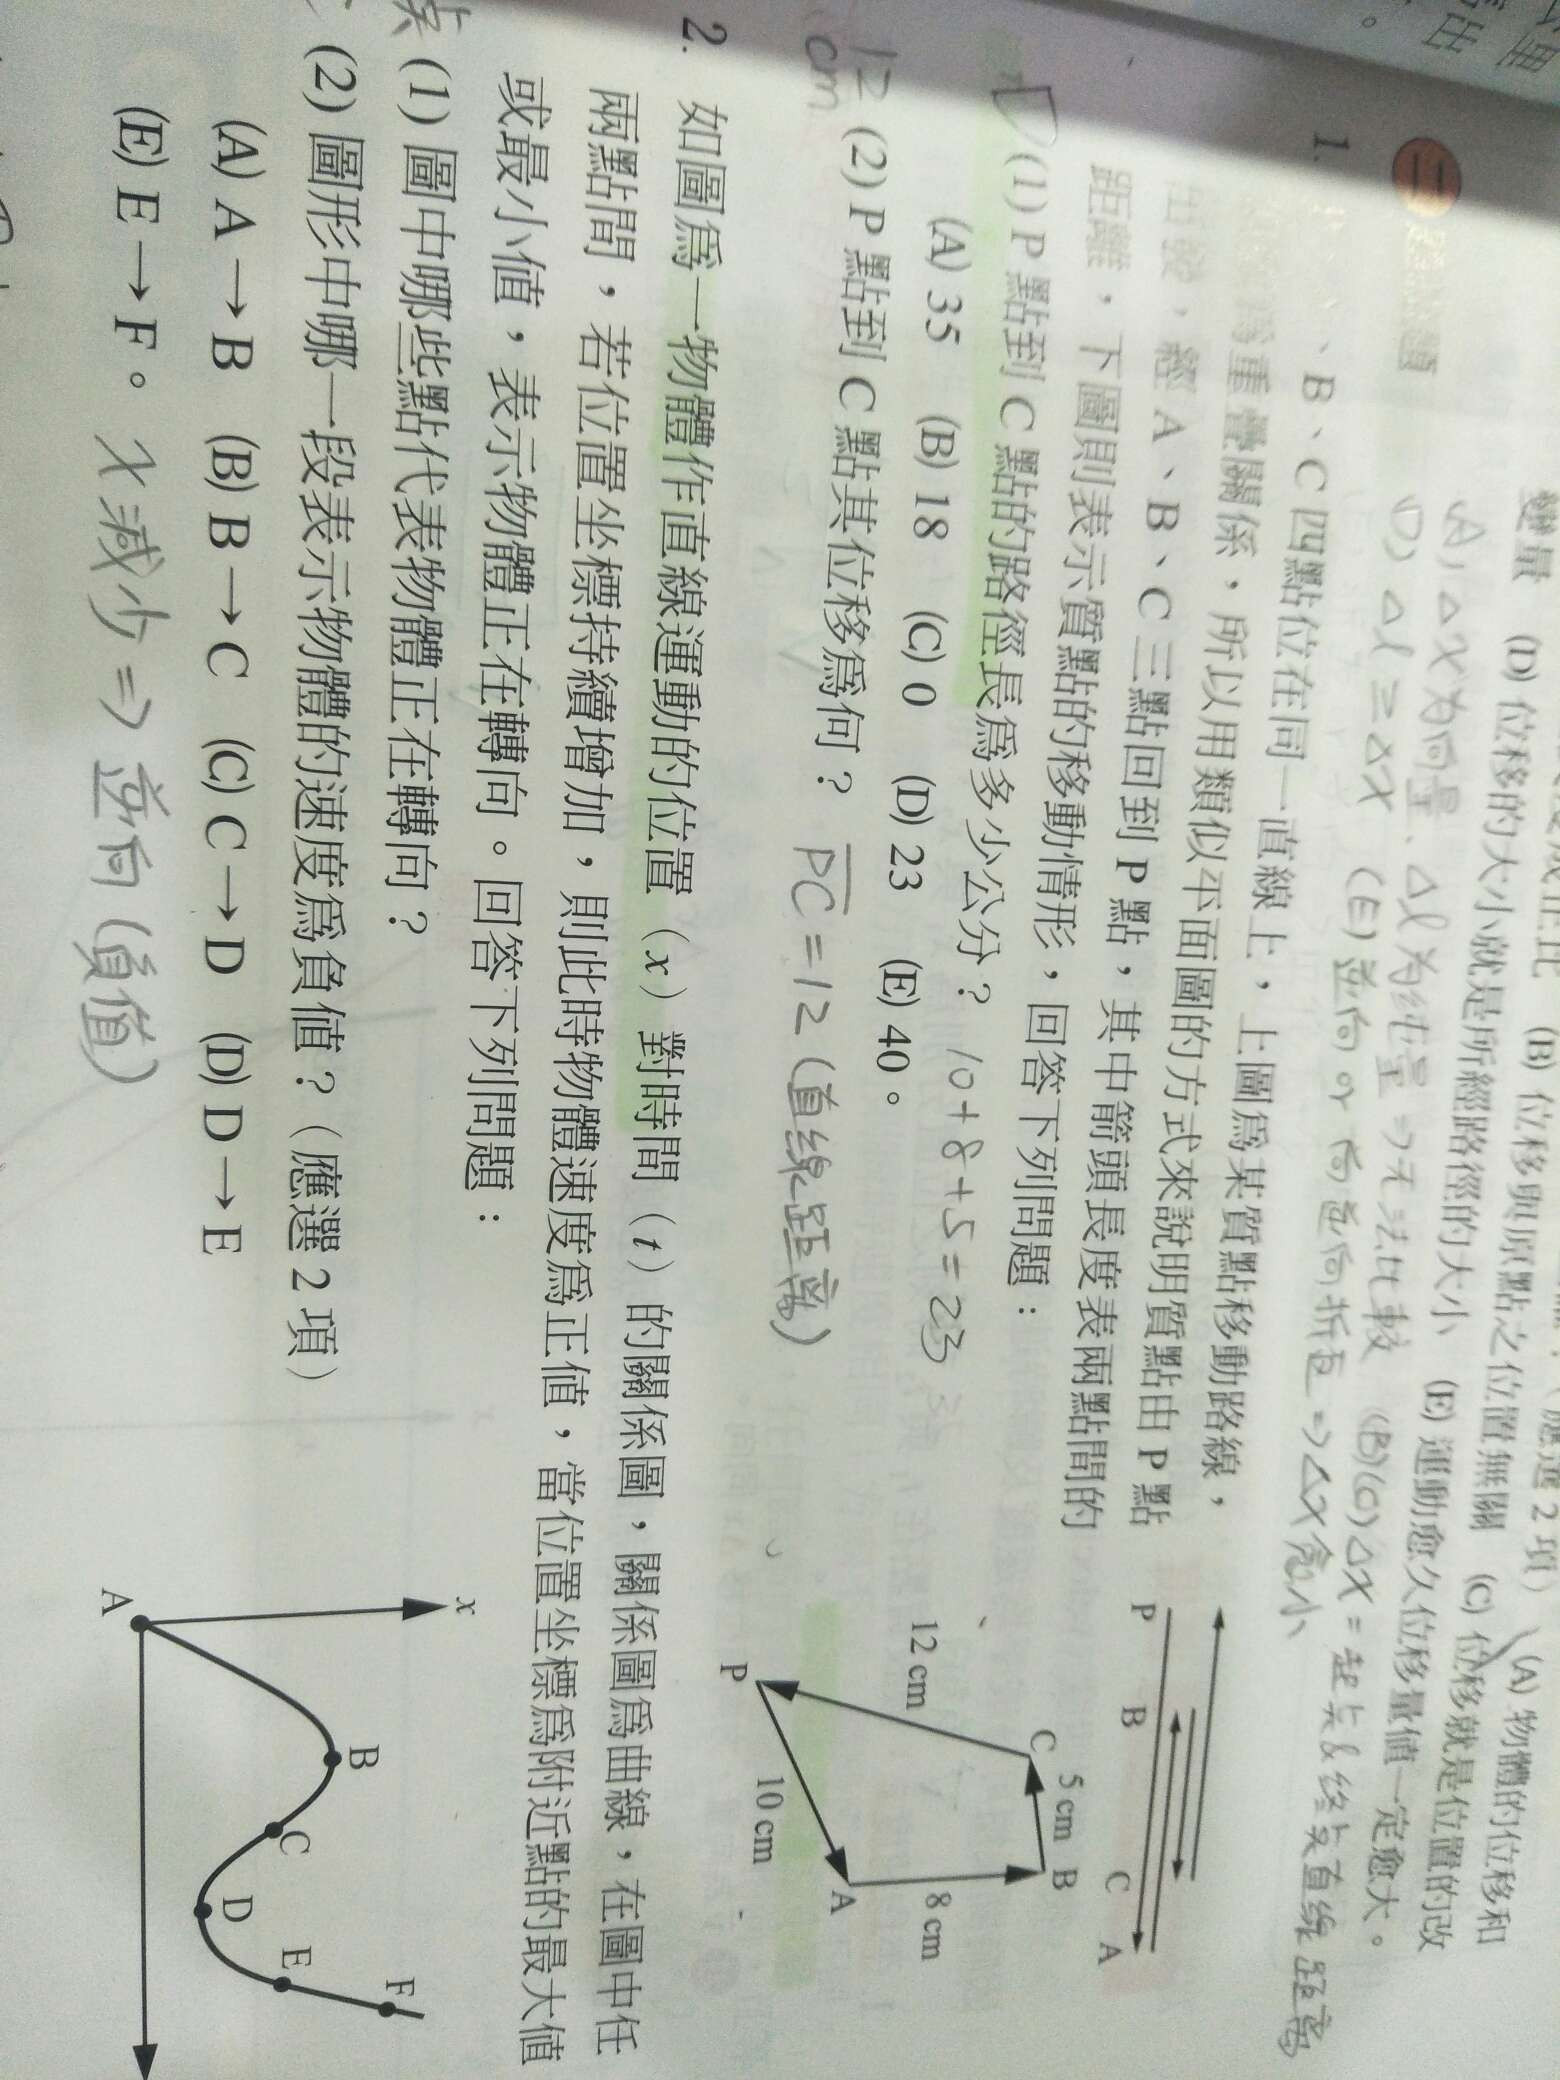 變量 (D) 位移的大小就是所經路徑的大小 (E) 運動愈久位移量值一定愈大。
(B) 位移與原點之位置無關 (C) 位移就是位置的改
(應選 2 項) (A) 物體的位移和
(A) △X為向量、△l為純量 => 无法比較 (B)(C) △X = 起点&終点直線距离
(D) △l ≥ △X (E) 逆向 or 向逆向折返 => △X會小
二
1. 、B、C 四點位在同一直線上,上圖為某質點移動路線,
為重疊關係,所以用類似平面圖的方式來說明質點由 P 點
出發,經 A、B、C 三點回到 P 點,其中箭頭長度表兩點間的
距離,下圖則表示質點的移動情形,回答下列問題:
D (1) P 點到 C 點的路徑長為多少公分? 10+8+5=23
(A) 35 (B) 18 (C) 0 (D) 23 (E) 40。
12 cm (2) P 點到 C 點其位移為何? PC=12 (直線距离)
P B C A
C 5 cm B
12 cm 8 cm
P 10 cm A
2. 如圖為一物體作直線運動的位置(x)對時間(t)的關係圖,關係圖為曲線,在圖中任
兩點間,若位置坐標持續增加,則此時物體速度為正值,當位置坐標為附近點的最大值
或最小值,表示物體正在轉向。回答下列問題:
(1) 圖中哪些點代表物體正在轉向?
(2) 圖形中哪一段表示物體的速度為負值?(應選 2 項)
(A) A→B (B) B→C (C) C→D (D) D→E
(E) E→F。 X減少 => 逆向 (負值)
x
B
C
D
E
F
A